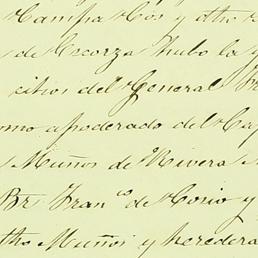 Campa Cos y otro
de Escorza hubo la
citios del General
mo apoderado del
Muños de Rivera
Br Franco de Cosio y
Muñoz y heredera